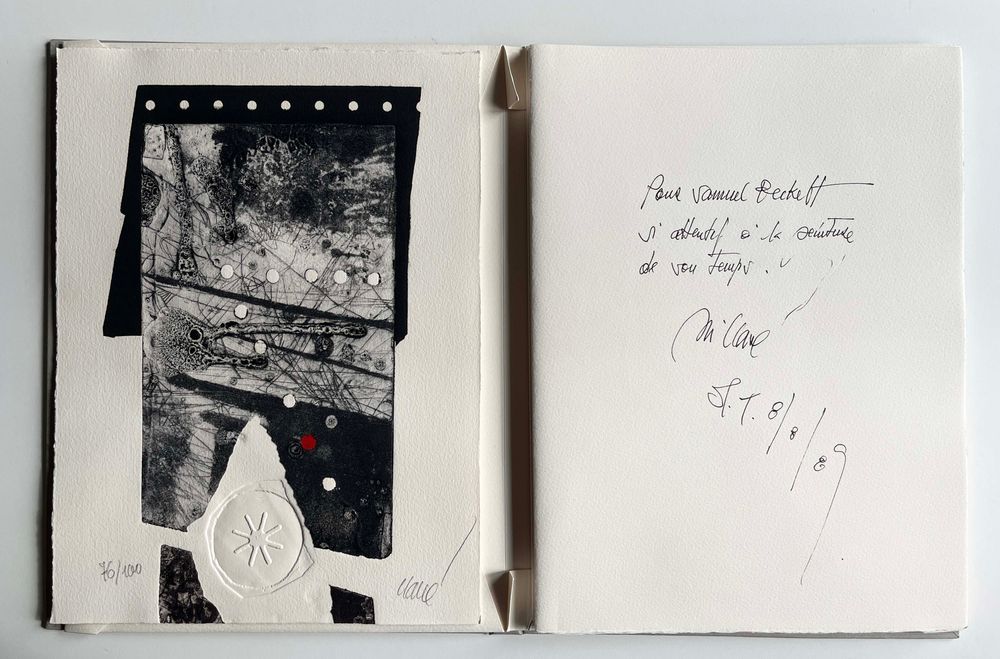 76/100
Clavé
Pour Samuel Beckett
si attentif à la peinture
de son temps.
Clavé
S.T. 8/8/89